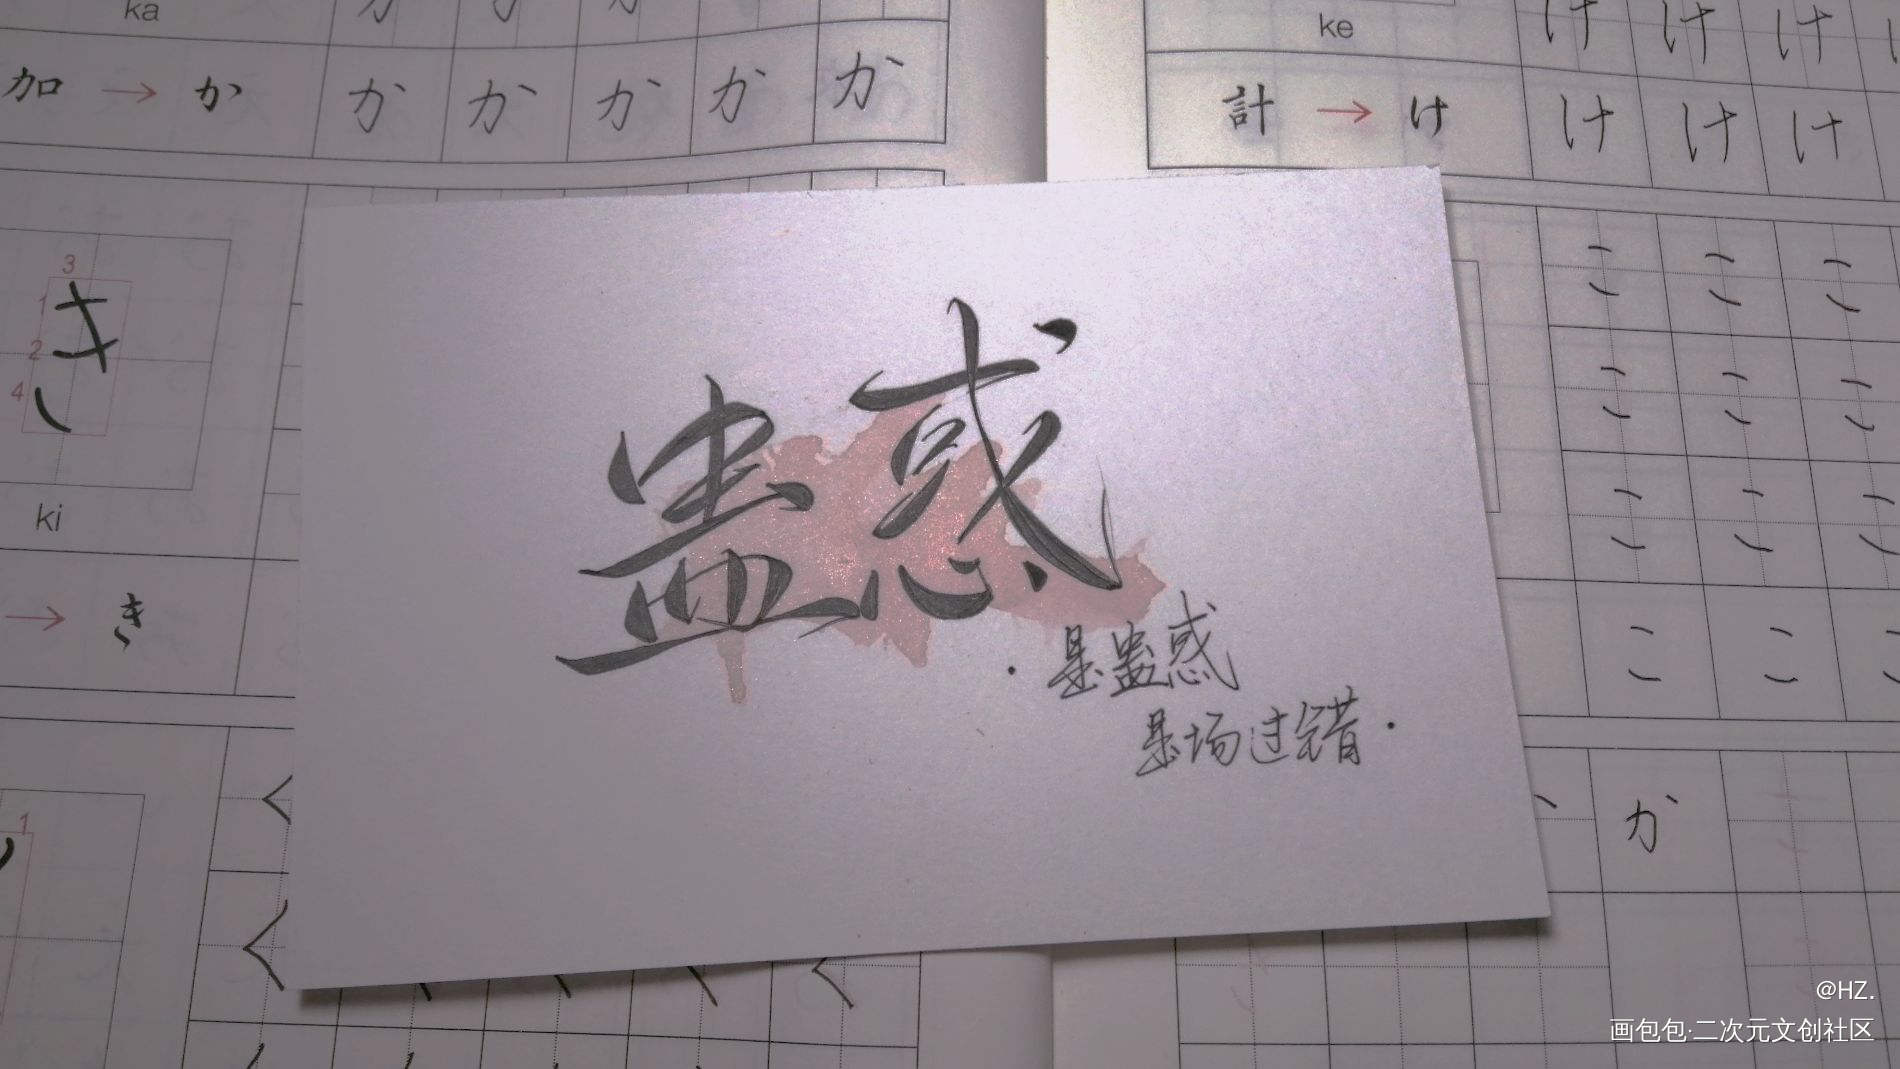 ka
か か か
ke
け け け
加 → か か か か か か
計 → け け け け
3
1
2
4
き
ki
→ き
こ こ こ
こ こ こ
こ こ こ
こ こ こ
蛊惑
·是蛊惑
是场过错·
1
く
く
く く く く
か
@HZ.
画包包·二次元文创社区